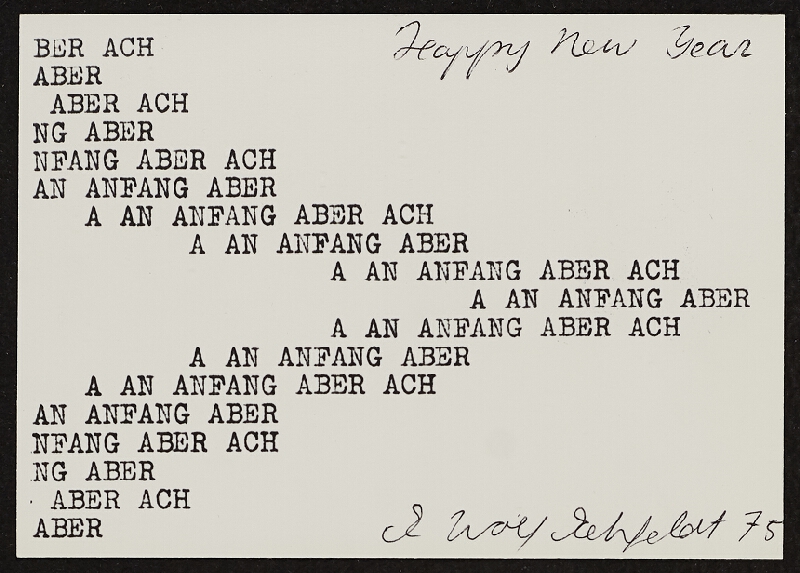 Happy New Year
BER ACH
ABER
ABER ACH
NG ABER
NFANG ABER ACH
AN ANFANG ABER
A AN ANFANG ABER ACH
A AN ANFANG ABER
A AN ANFANG ABER ACH
A AN ANFANG ABER
A AN ANFANG ABER ACH
A AN ANFANG ABER
A AN ANFANG ABER ACH
AN ANFANG ABER
NFANG ABER ACH
NG ABER
ABER ACH
ABER
R Wolf Rehfeldt 75